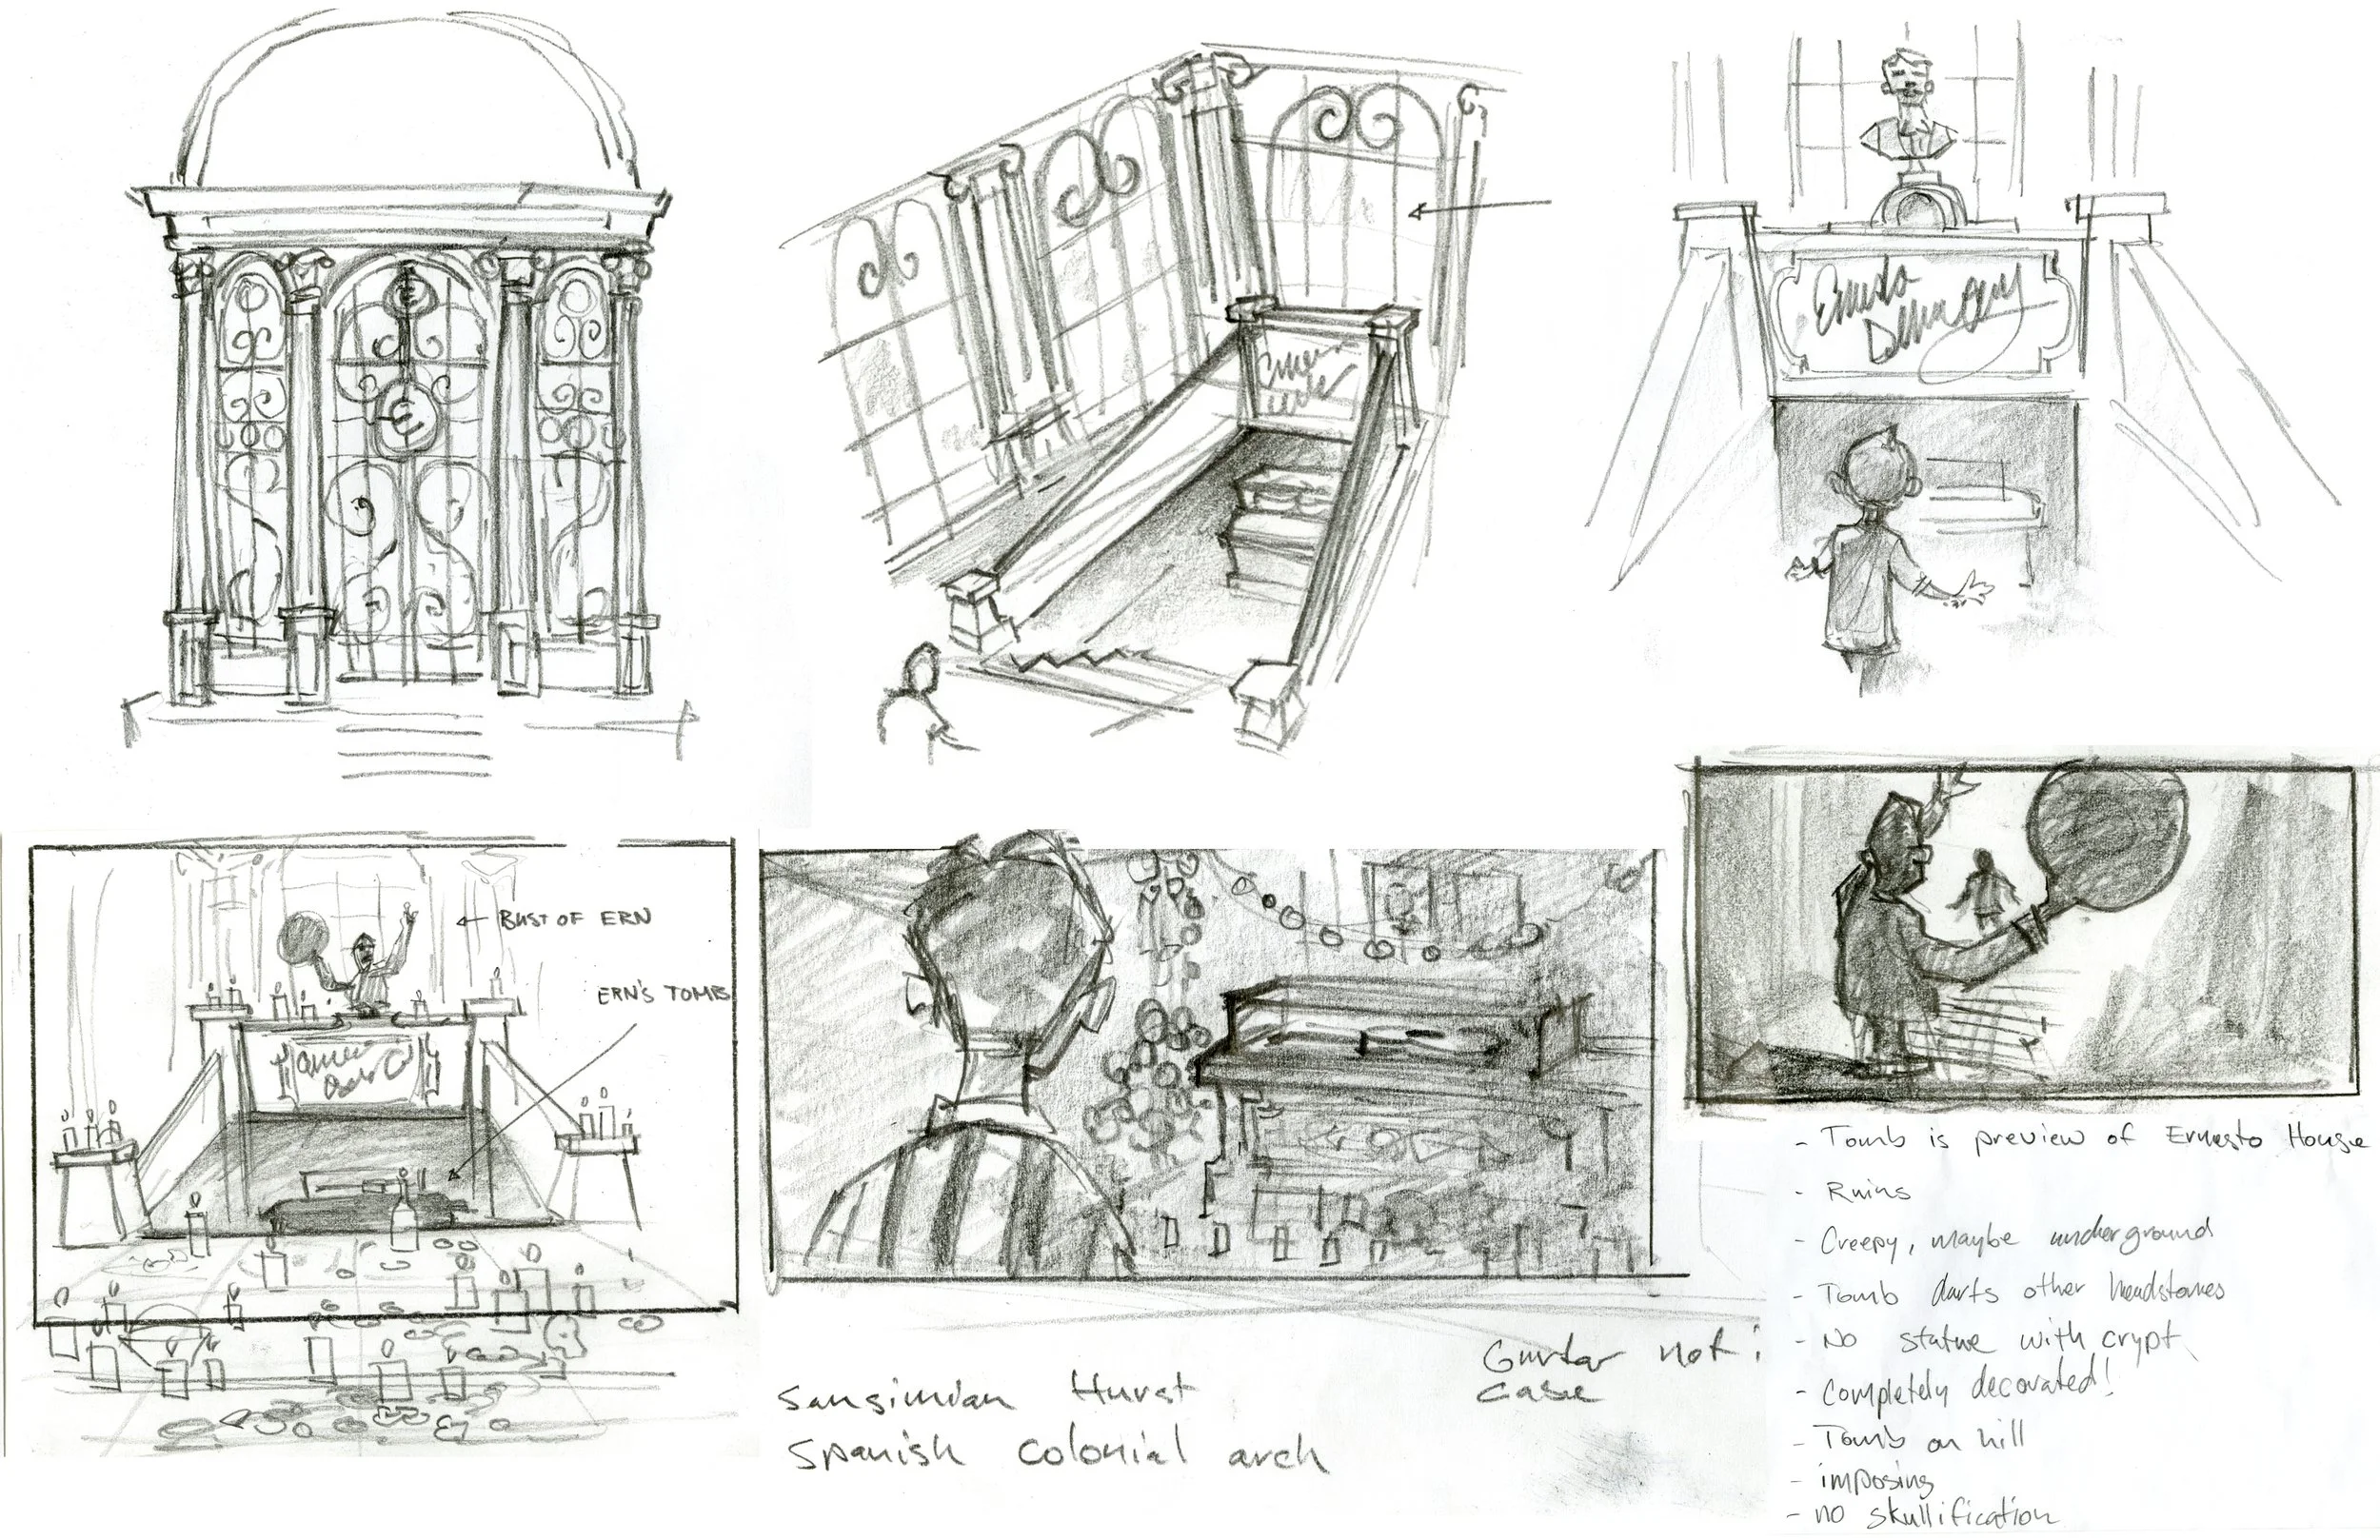 E
E
Ernesto
BUST OF ERN
ERN'S TOMB
Sansimian Hurst
Spanish colonial arch
Guitar not
case
- Tomb is preview of Ernesto House
- Ruins
- Creepy, maybe underground
- Tomb darfs other headstones
- No statue with crypt
- Completely decorated!
- Tomb on hill
- imposing
- no skullification